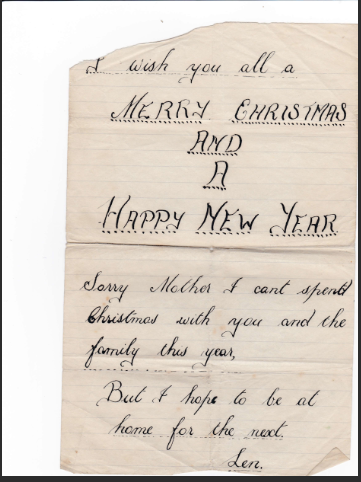 I wish you all a
MERRY CHRISTMAS
AND
A
HAPPY NEW YEAR
Sorry Mother I cant spend
Christmas with you and the
family this year,
But I hope to be at
home for the next.
Len.